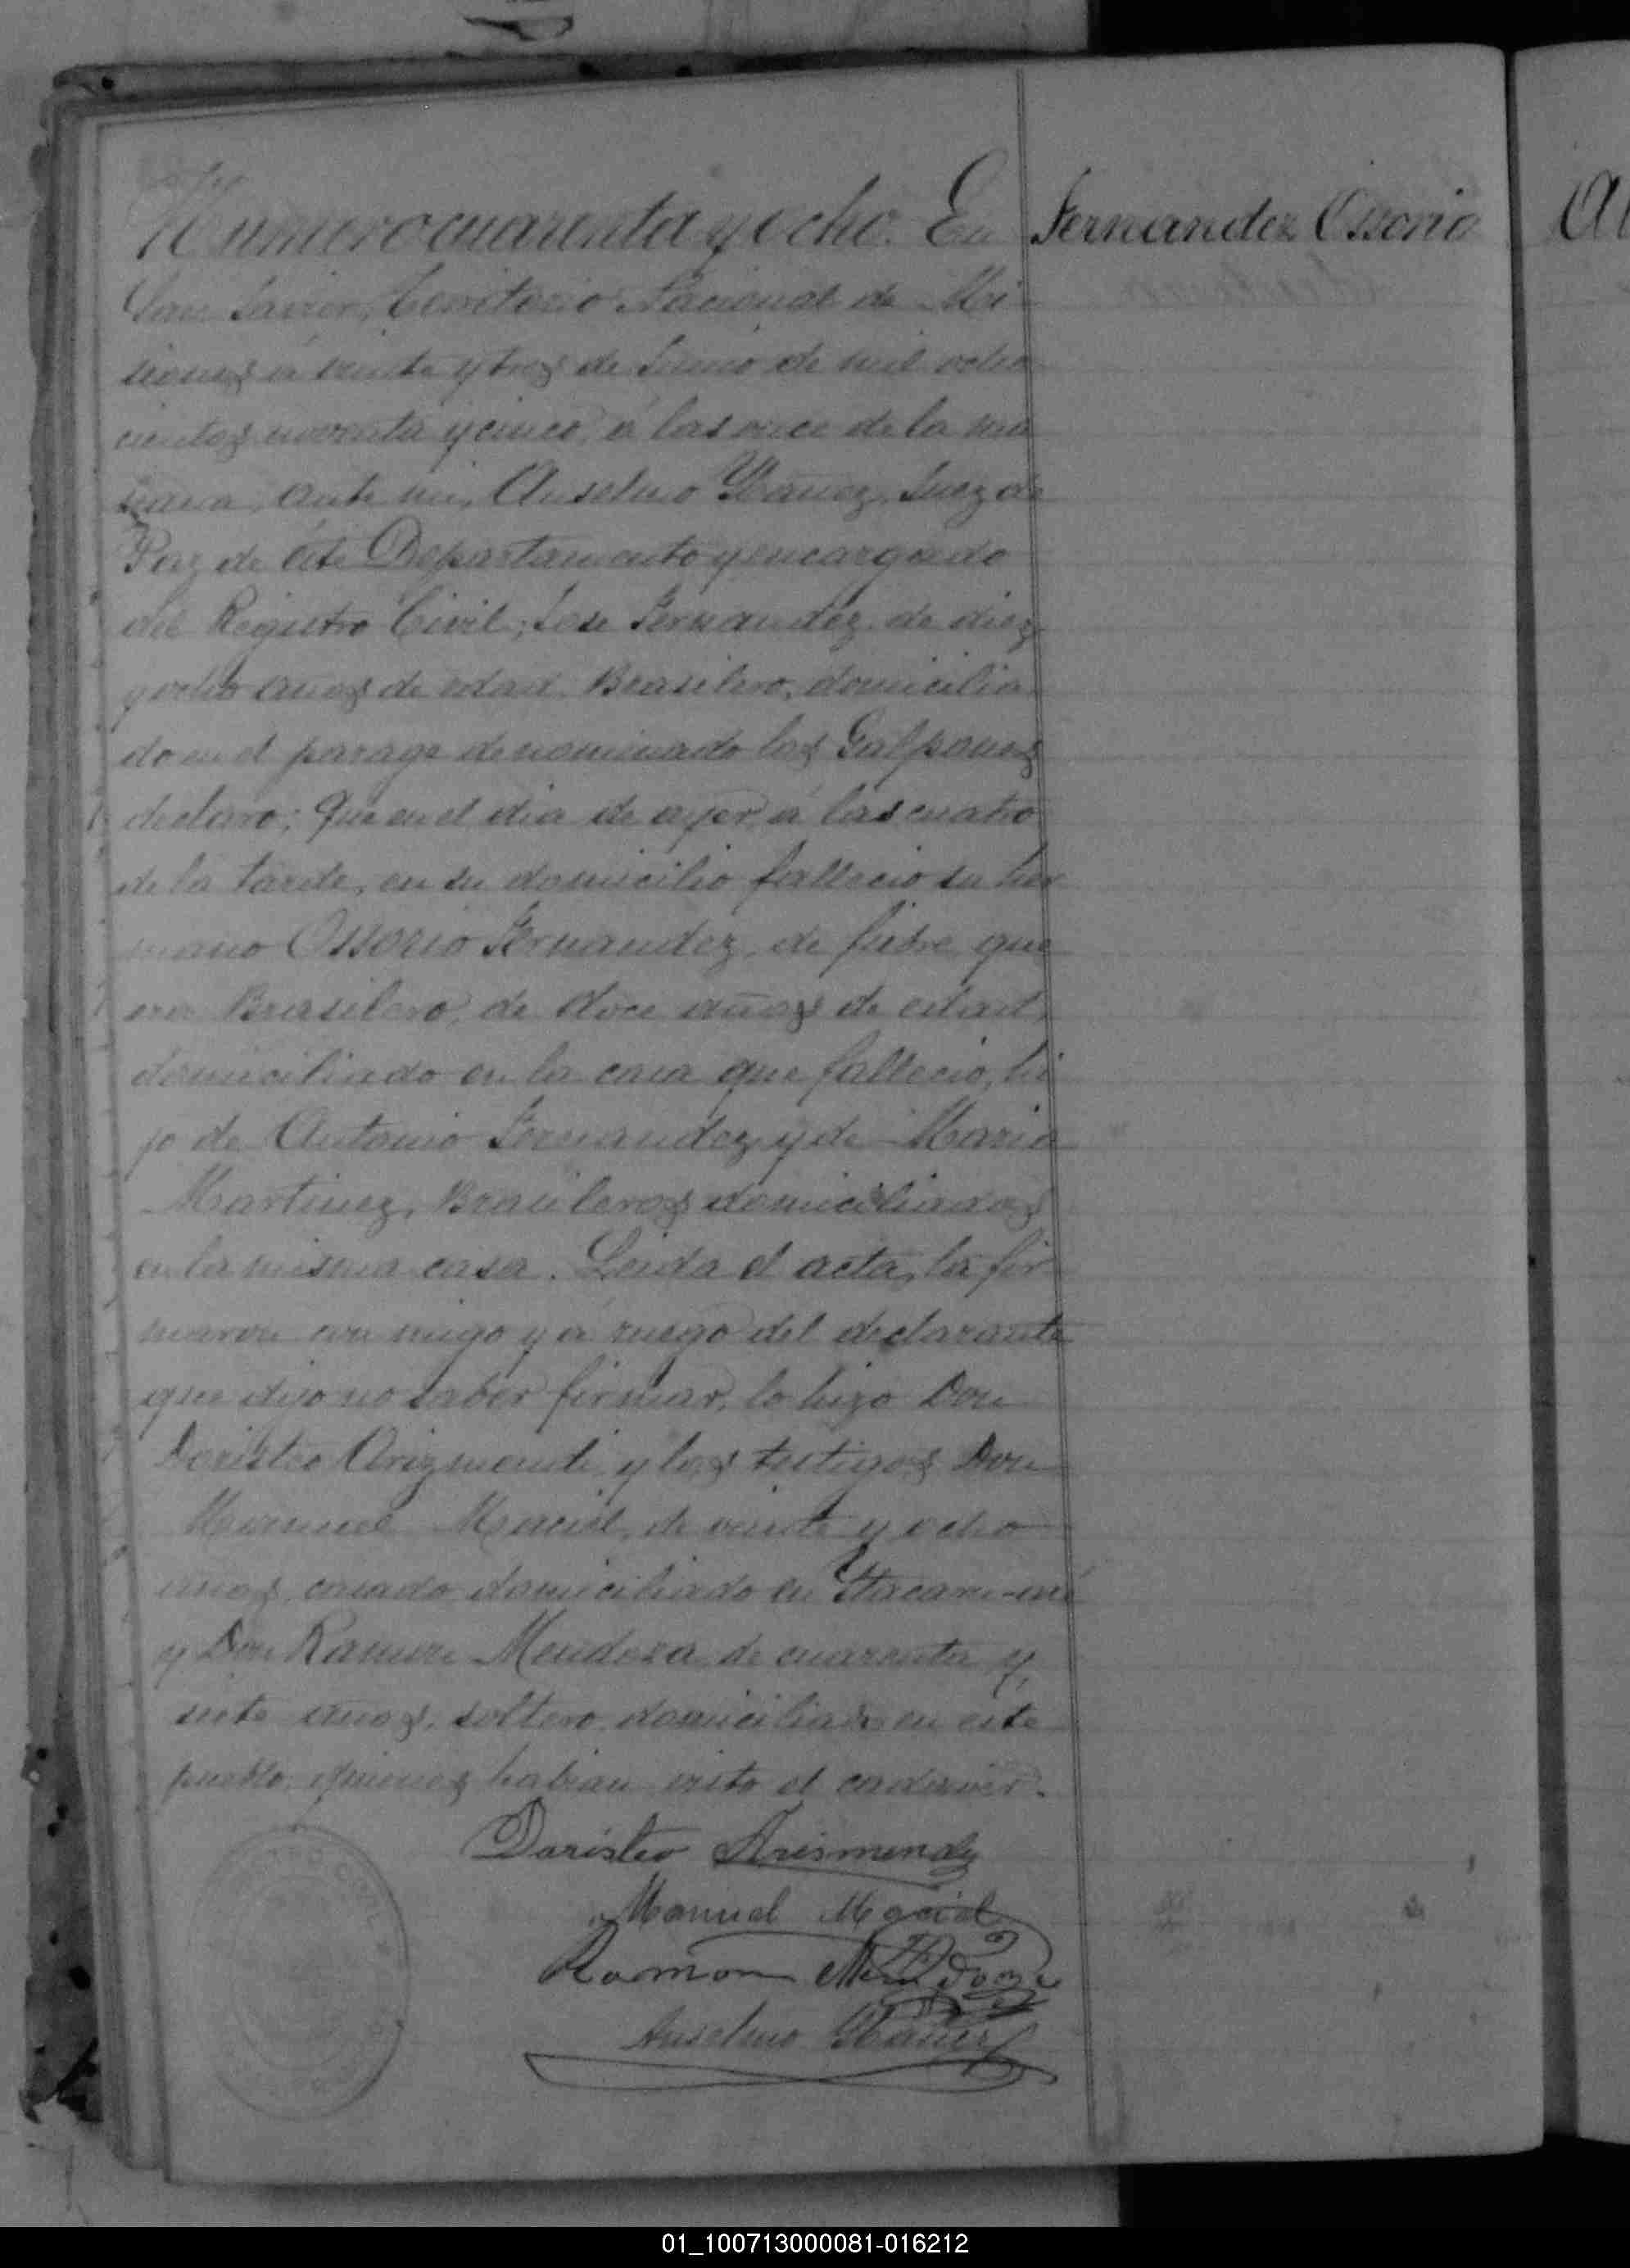 Numero cuarenta y ocho. En
Fernandez Ossorio
San Javier, Territorio Nacional de Mi-
siones á veinte y tres de Junio de mil ocho
cientos noventa y cinco, á las once de la ma
ñana, ante mi, Anselmo Ybañez, Juez de
Paz de éste Departamento y encargado
del Registro Civil; Jose Fernandez, de diez
y ocho años de edad, Brasilero, domicilia
do en el parage denominado los Galpones
declaro; Que en el dia de ayer, á las cuatro
de la tarde, en su domicilio fallecio su her
mano Ossorio Fernandez, de fiebre, que
era Brasilero, de doce años de edad,
domiciliado en la casa que fallecio, hi
jo de Antonio Fernandez y de Maria
Martinez, Brasileros domiciliados
en la misma casa. Leida el acta, la fir
maron con migo y á ruego del declarante
que dijo no saber firmar, lo hizo Don
Daristeo Arizmendi y los testigos Don
Manuel Maciel, de veinte y ocho
años, casado domiciliado en
y Don Ramon Mendoza de cuarenta y
siete años, soltero, domiciliado en este
pueblo, quienes habian visto el cadaver.
Daristeo Arismendy
Manuel Maciel
Ramon Mendoza
Anselmo Ybañez
CIVIL
01_100713000081-016212